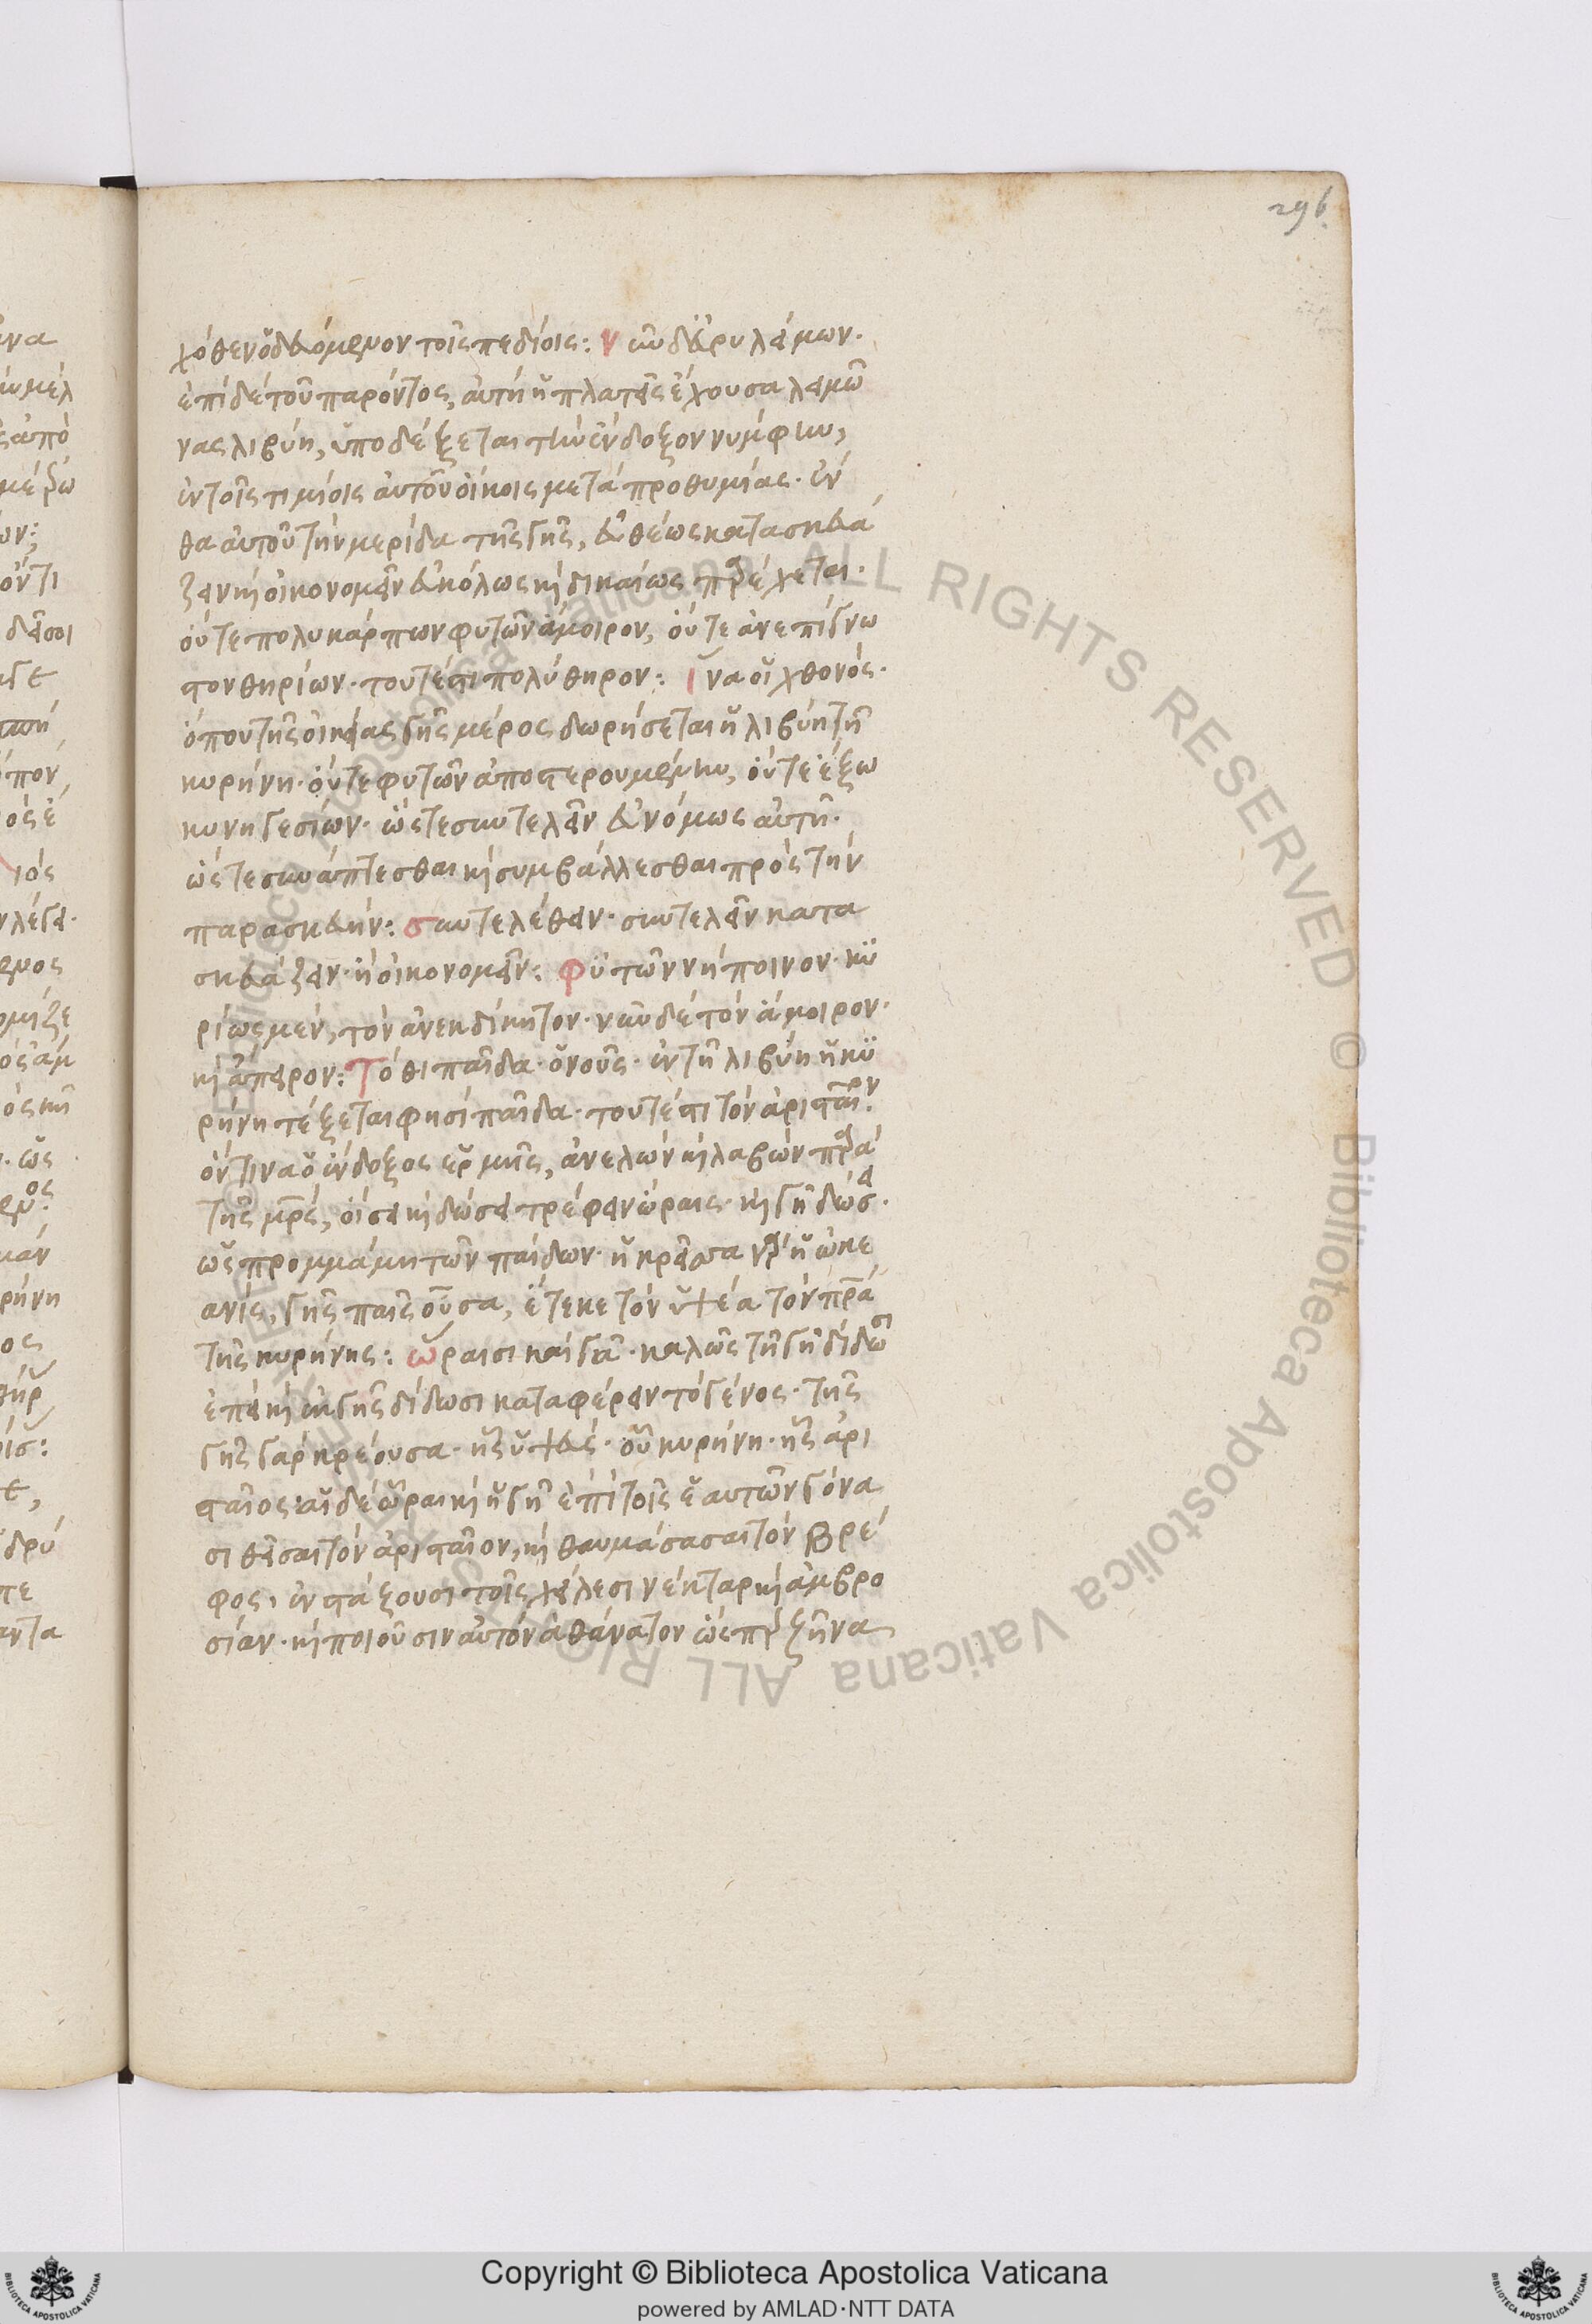 296
χόθεν ὁδευόμενον τοῖς πεδίοις: νῦν δ' εὐρυλείμων·
ἐπὶ δὲ τοῦ παρόντος, αὐτὴ ἡ πλατεῖς ἔχουσα λειμῶ
νας λιβύη, ὑποδέξεται τὴν ἔνδοξον νύμφην,
ἐν τοῖς τιμίοις αὐτοῦ οἴκοις μετὰ προθυμίας· ἐν
θα αὐτοῦ τὴν μερίδα τῆς γῆς, εὐθέως κατασκευά
ζειν κὴ οἰκονομεῖν εὐκόλως κὴ δικαίως παρέχεται·
οὔτε πολυκάρπων φυτῶν ἄμοιρον, οὔτε ἀνεπίγνω
στον θηρίων· τουτέστι πολύθηρον: ἵνα οἱ χθονός·
ὅπου τῆς οἰκείας γῆς μέρος δωρήσεται ἡ λιβύη τῆ
κυρήνη· οὔτε φυτῶν ἀποστερουμένην, οὔτε ἔξω
κυνηγεσίων· ὥστε συντελεῖν εὐνόμως αὐτῆ·
ὥστε συνάπτεσθαι κὴ συμβάλλεσθαι πρὸς τὴν
παρασκευήν: συντελέθειν· συντελεῖν κατα
σκευάζειν· ἢ οἰκονομεῖν: φυτῶν νήποινον· κυ
ρίως μὲν, τὸν ἀνεκδίκητον· νῦν δὲ τὸν ἄμοιρον·
κὴ ἄπειρον: τόθι παῖδα· ὁ νοῦς· ἐν τῆ λιβύη ἡ κυ
ρήνη τέξεται φησὶ παῖδα· τουτέστι τὸν ἀρισταῖον·
ὅντινα ὁ ἔνδοξος ἑρμῆς, ἀνελὼν κὴ λαβὼν παρὰ
τῆς μρς, οἴσει κὴ δώσει τρέφειν ὥραις· κὴ γῆ δώσει·
ὡς προμμάμη τῶν παίδων· ἡ κρείουσα γὰρ ἡ ὠκε
ανὶς, γῆς παῖς οὖσα, ἔτεκε τὸν ὑψέα τὸν πρα
τῆς κυρήνης: ὥραισι καὶ γᾶ· καλῶς τῆ γῆ δίδωσι
ἐπεὶ κὴ ἐκ γῆς δίδωσι καταφέρειν τὸ γένος· τῆς
γῆς γὰρ κρέουσα· ἧς ὑψεύς· οὗ κυρήνη· ἧς ἀρι
σταῖος: αἱ δὲ ὧραι κὴ ἡ γῆ ἐπὶ τοῖς ἑαυτῶν γόνα
σι θεῖσαι τὸν ἀρισταῖον, κὴ θαυμάσασαι τὸν βρέ
φος, ἐνστάξουσι τοῖς χείλεσι νέκταρ κὴ ἀμβρο
σίαν· κὴ ποιοῦσιν αὐτὸν ἀθάνατον ὥσπερ ζῆνα
Copyright © Biblioteca Apostolica Vaticana
powered by AMLAD·NTT DATA